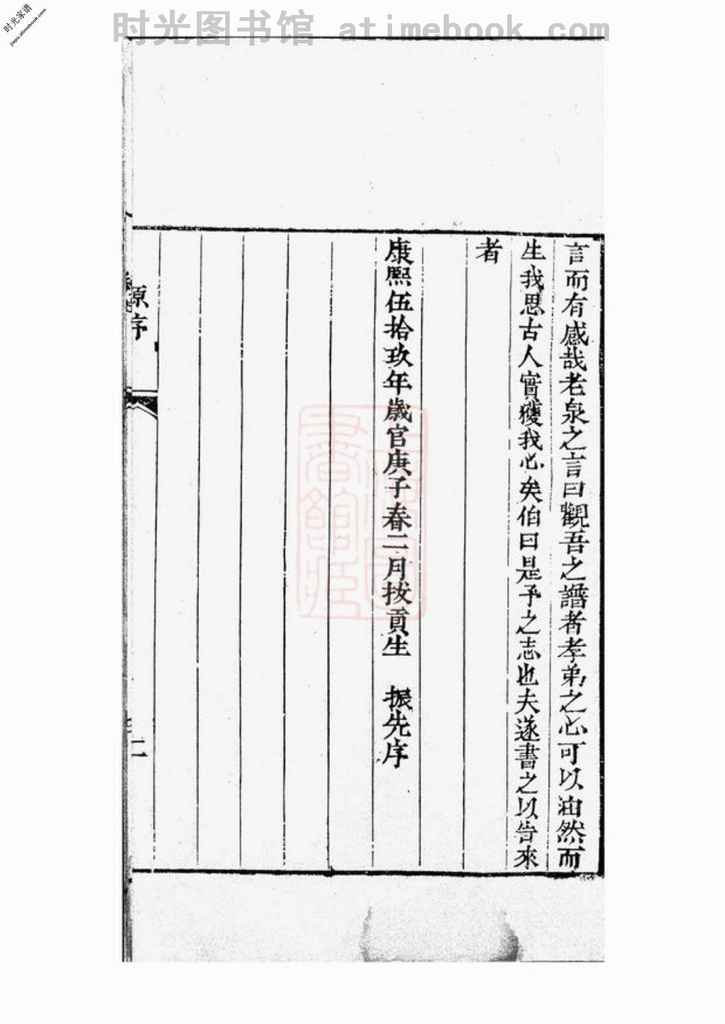 时光图书馆 atimebook.com
时光家谱
言而有感哉老泉之言曰觀吾之譜者孝弟之心可以油然而
生我思古人實獲我心矣伯曰是予之志也夫遂書之以告來
者
康熙伍拾玖年歲官庚子春二月拔貢生 振先序
原序
二